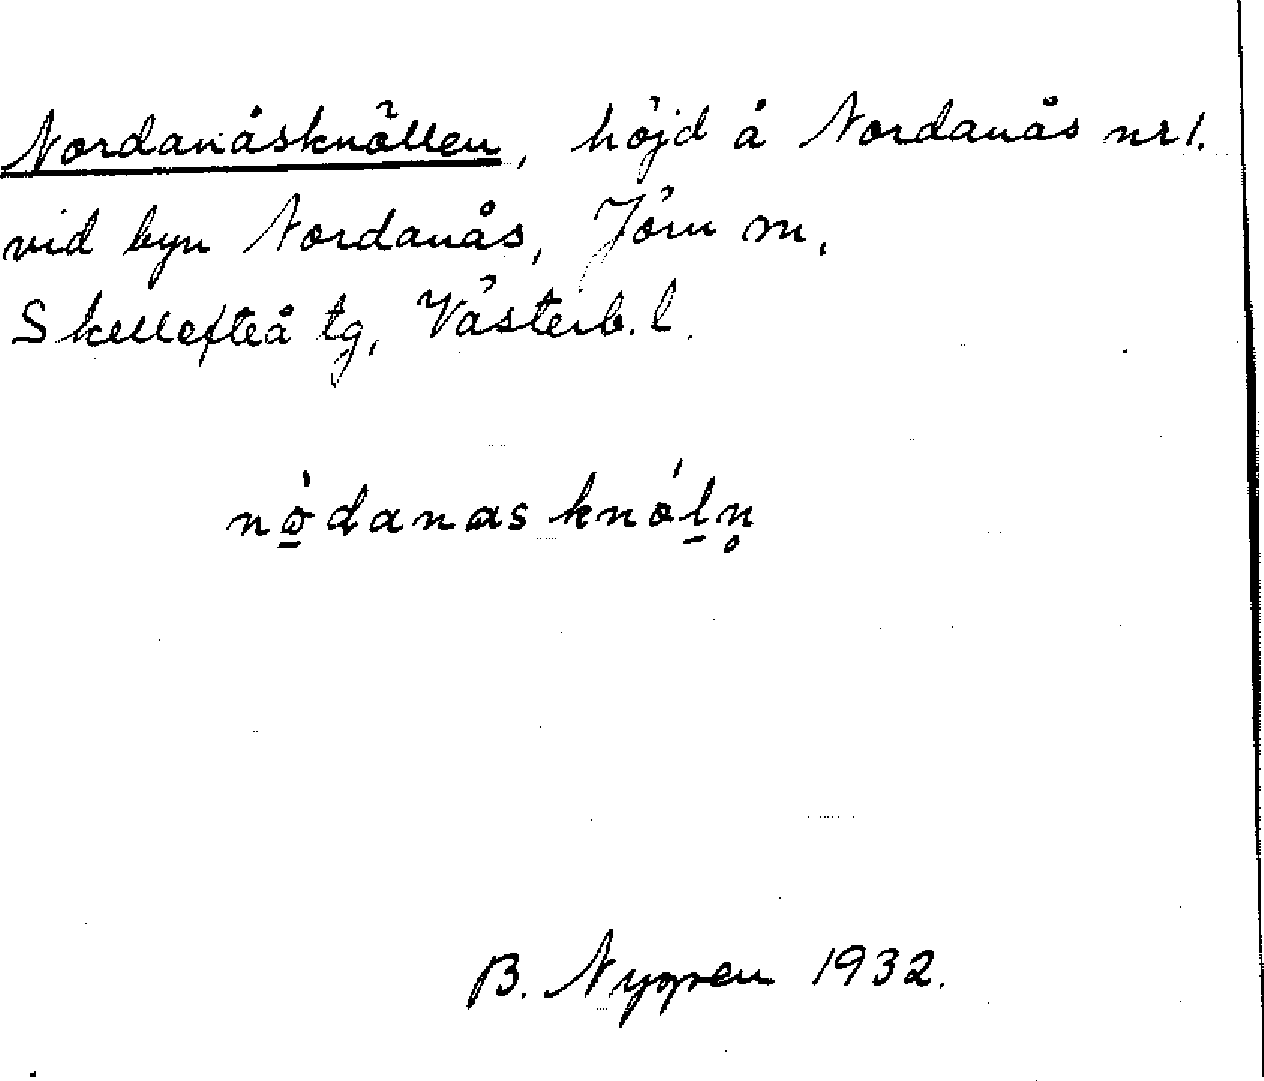 Nordanåsknöllen, höjd å Nordanås nr 1.
vid byn Nordanås, Jörn sn,
Skellefteå tg, Västerb. l.
nò̱danas knóḻn̥
B. Nygren 1932.